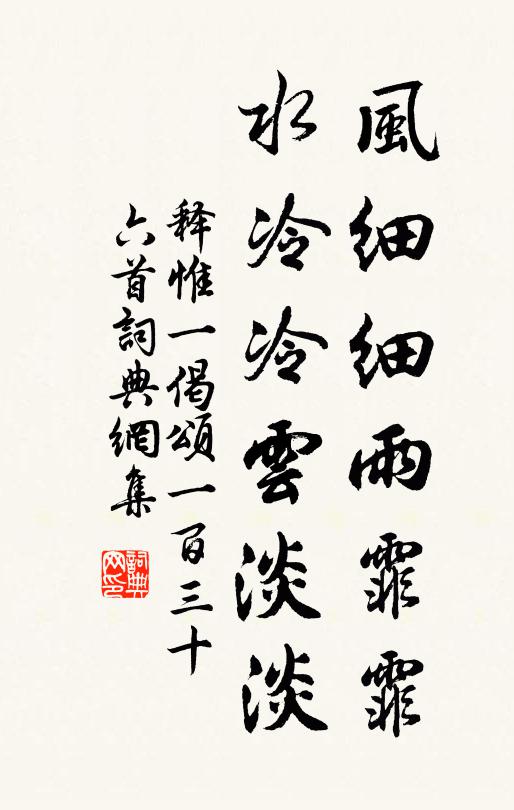 風細細雨霏霏
水冷冷雲淡淡
释惟一偈頌一百三十
六首詞典網集
詞典网印